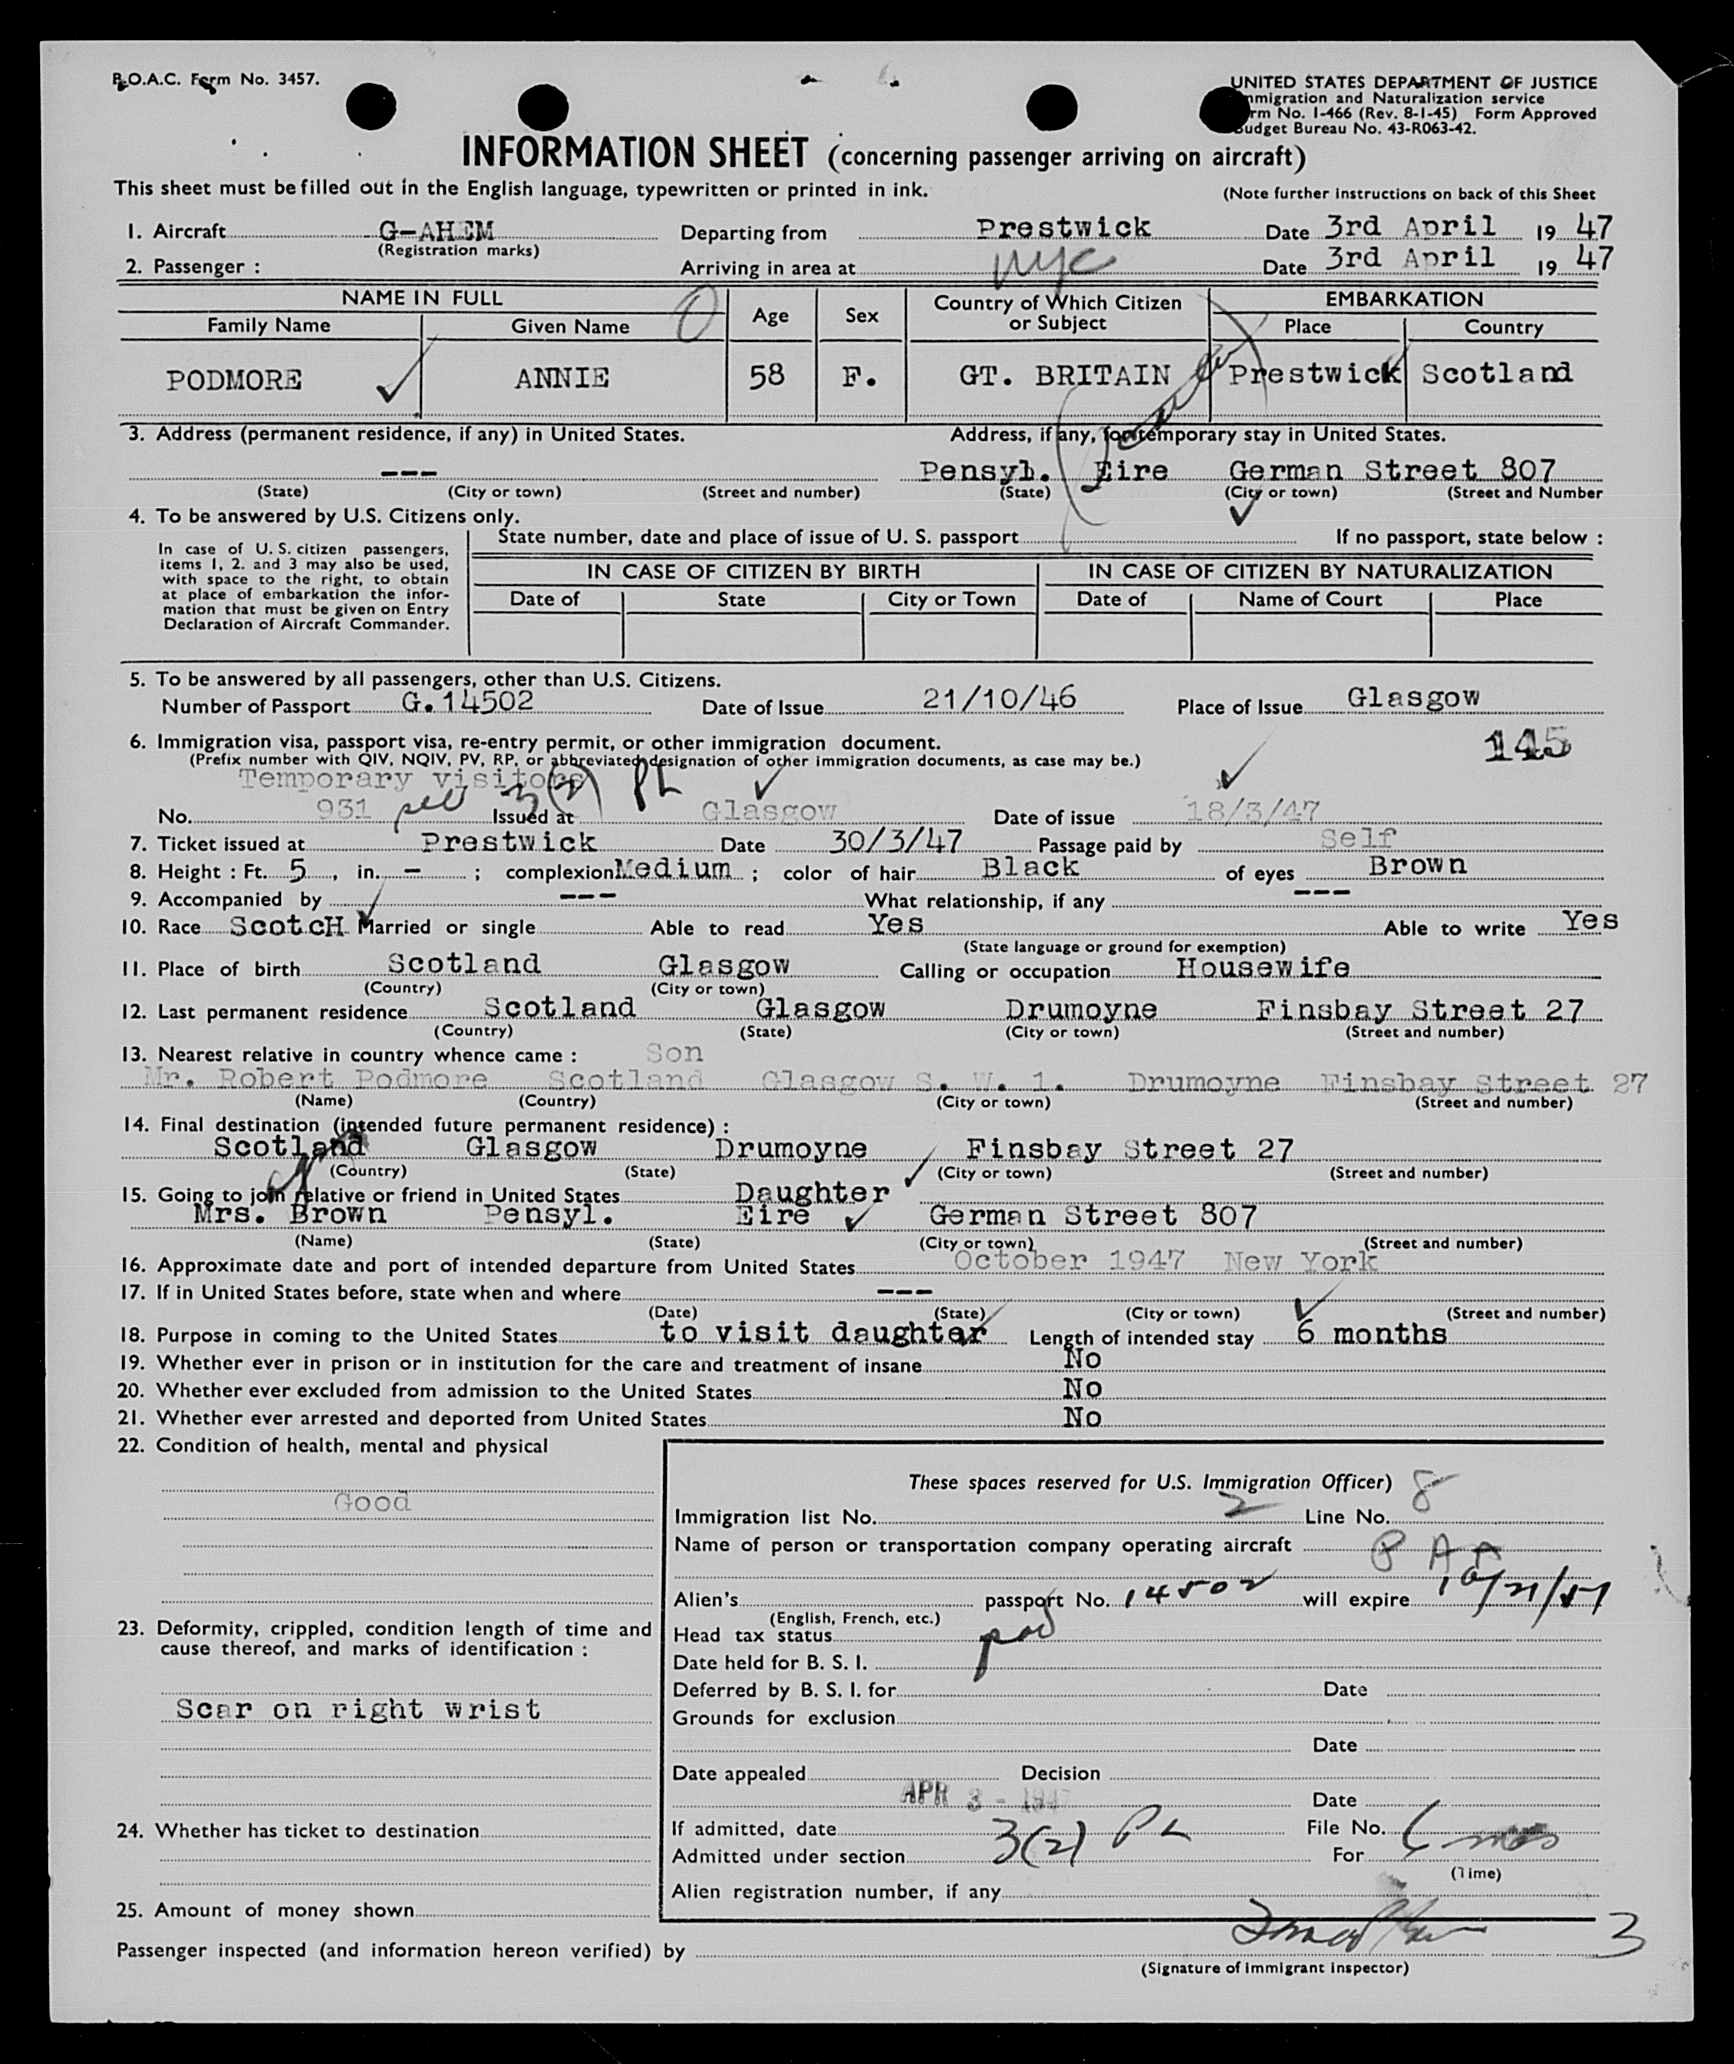 B.O.A.C. Form No. 3457.
UNITED STATES DEPARTMENT OF JUSTICE
Immigration and Naturalization service
Form No. I-466 (Rev. 8-1-45) Form Approved
Budget Bureau No. 43-R063-42.
INFORMATION SHEET (concerning passenger arriving on aircraft)
This sheet must be filled out in the English language, typewritten or printed in ink.
(Note further instructions on back of this Sheet
1. Aircraft G-AHEM Departing from Prestwick Date 3rd April 19 47
(Registration marks)
2. Passenger : Arriving in area at NYC Date 3rd April 19 47
NAME IN FULL Age Sex Country of Which Citizen or Subject EMBARKATION
Family Name Given Name Place Country
PODMORE ANNIE 58 F. GT. BRITAIN Prestwick Scotland
3. Address (permanent residence, if any) in United States. Address, if any, for temporary stay in United States.
--- Pensyl. Eire German Street 807
(State) (City or town) (Street and number) (State) (City or town) (Street and Number
4. To be answered by U.S. Citizens only.
State number, date and place of issue of U. S. passport If no passport, state below :
In case of U. S. citizen passengers,
items 1, 2. and 3 may also be used,
with space to the right, to obtain
at place of embarkation the infor-
mation that must be given on Entry
Declaration of Aircraft Commander.
IN CASE OF CITIZEN BY BIRTH IN CASE OF CITIZEN BY NATURALIZATION
Date of State City or Town Date of Name of Court Place
5. To be answered by all passengers, other than U.S. Citizens.
Number of Passport G.14502 Date of Issue 21/10/46 Place of Issue Glasgow
6. Immigration visa, passport visa, re-entry permit, or other immigration document. 145
(Prefix number with QIV, NQIV, PV, RP, or abbreviated designation of other immigration documents, as case may be.)
Temporary visitors 3(2) PL
No. 931 Issued at Glasgow Date of issue 18/3/47
7. Ticket issued at Prestwick Date 30/3/47 Passage paid by Self
8. Height : Ft. 5, in. - ; complexion Medium ; color of hair Black of eyes Brown
9. Accompanied by --- What relationship, if any ---
10. Race ScotcH Married or single Able to read Yes Able to write Yes
(State language or ground for exemption)
11. Place of birth Scotland Glasgow Calling or occupation Housewife
(Country) (City or town)
12. Last permanent residence Scotland Glasgow Drumoyne Finsbay Street 27
(Country) (State) (City or town) (Street and number)
13. Nearest relative in country whence came : Son
Mr. Robert Podmore Scotland Glasgow S. W. 1. Drumoyne Finsbay Street 27
(Name) (Country) (City or town) (Street and number)
14. Final destination (intended future permanent residence) :
Scotland Glasgow Drumoyne Finsbay Street 27
(Country) (State) (City or town) (Street and number)
15. Going to join relative or friend in United States Daughter
Mrs. Brown Pensyl. Eire German Street 807
(Name) (State) (City or town) (Street and number)
16. Approximate date and port of intended departure from United States October 1947 New York
17. If in United States before, state when and where ---
(Date) (State) (City or town) (Street and number)
18. Purpose in coming to the United States to visit daughter Length of intended stay 6 months
19. Whether ever in prison or in institution for the care and treatment of insane No
20. Whether ever excluded from admission to the United States No
21. Whether ever arrested and deported from United States No
22. Condition of health, mental and physical
Good
23. Deformity, crippled, condition length of time and
cause thereof, and marks of identification :
Scar on right wrist
24. Whether has ticket to destination
25. Amount of money shown
These spaces reserved for U.S. Immigration Officer)
Immigration list No. 2 Line No. 8
Name of person or transportation company operating aircraft
Alien's passport No. 14502 will expire 10/21/51
(English, French, etc.)
Head tax status
Date held for B. S. I.
Deferred by B. S. I. for Date
Grounds for exclusion
Date
Date appealed Decision
APR 3 - 1947 Date
If admitted, date File No.
Admitted under section 3(2) PL For 6 mos
(Time)
Alien registration number, if any
Passenger inspected (and information hereon verified) by 3
(Signature of Immigrant Inspector)